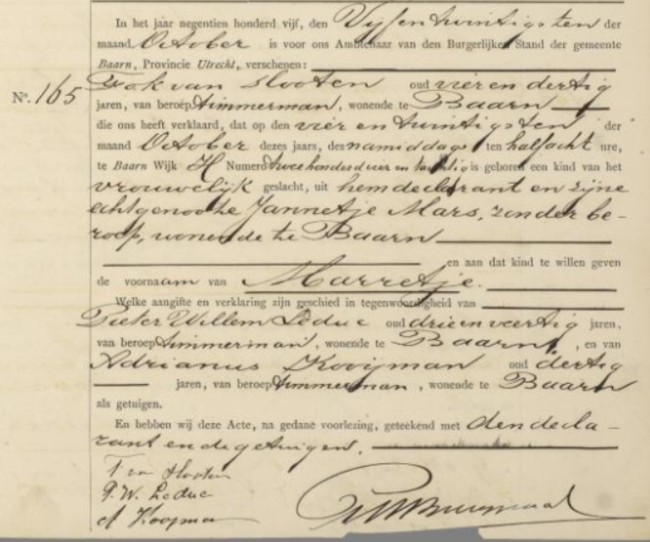 In het jaar negentien honderd vijf, den Vijfentwintigsten der
maand October is voor ons Ambtenaar van den Burgerlijken Stand der gemeente
Baarn, Provincie Utrecht, verschenen:
No. 165
Fok van Slooten oud vier en dertig
jaren, van beroep timmerman, wonende te Baarn
die ons heeft verklaard, dat op den vier en twintigsten der
maand October dezes jaars, des namiddags ten half acht ure,
te Baarn Wijk H Numero tweehonderd vier en tachtig is geboren een kind van het
vrouwelijk geslacht, uit hem declarant en zijne
echtgenoote Jannetje Mars, zonder be-
roep, wonende te Baarn
en aan dat kind te willen geven
de voornaam van Marretje.
Welke aangifte en verklaring zijn geschied in tegenwoordigheid van
Pieter Willem Leduc oud drie en veertig jaren,
van beroep timmerman, wonende te Baarn, en van
Adrianus Kooijman oud dertig
jaren, van beroep timmerman, wonende te Baarn
als getuigen.
En hebben wij deze Acte, na gedane voorlezing, geteekend met den decla-
rant en de getuigen.
F van Slooten
P. W. Leduc
A Kooyman